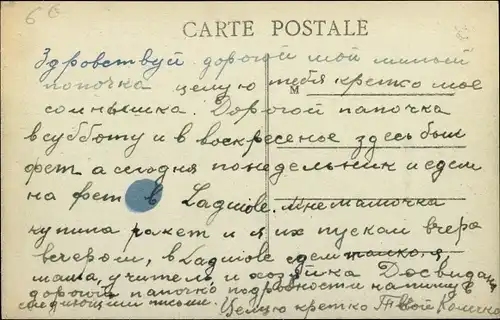 60
CARTE POSTALE
Здровствуй дорогой мой милый
папочка целую тебя крепко мое
M
сомнышка. Дорогой папочка
в субботу и в воскресенье здесь был
фет а сегодня понедельник и едем
на фет в Laguiole. Мне мамочка
купила ракет и я их пускал вчера
вечером, в Laguiole едем только, я,
маша, учитель и хозяйка Досвидания
дорогой папочка подробности напишу в
следующим письмі. Целую крепко Твой